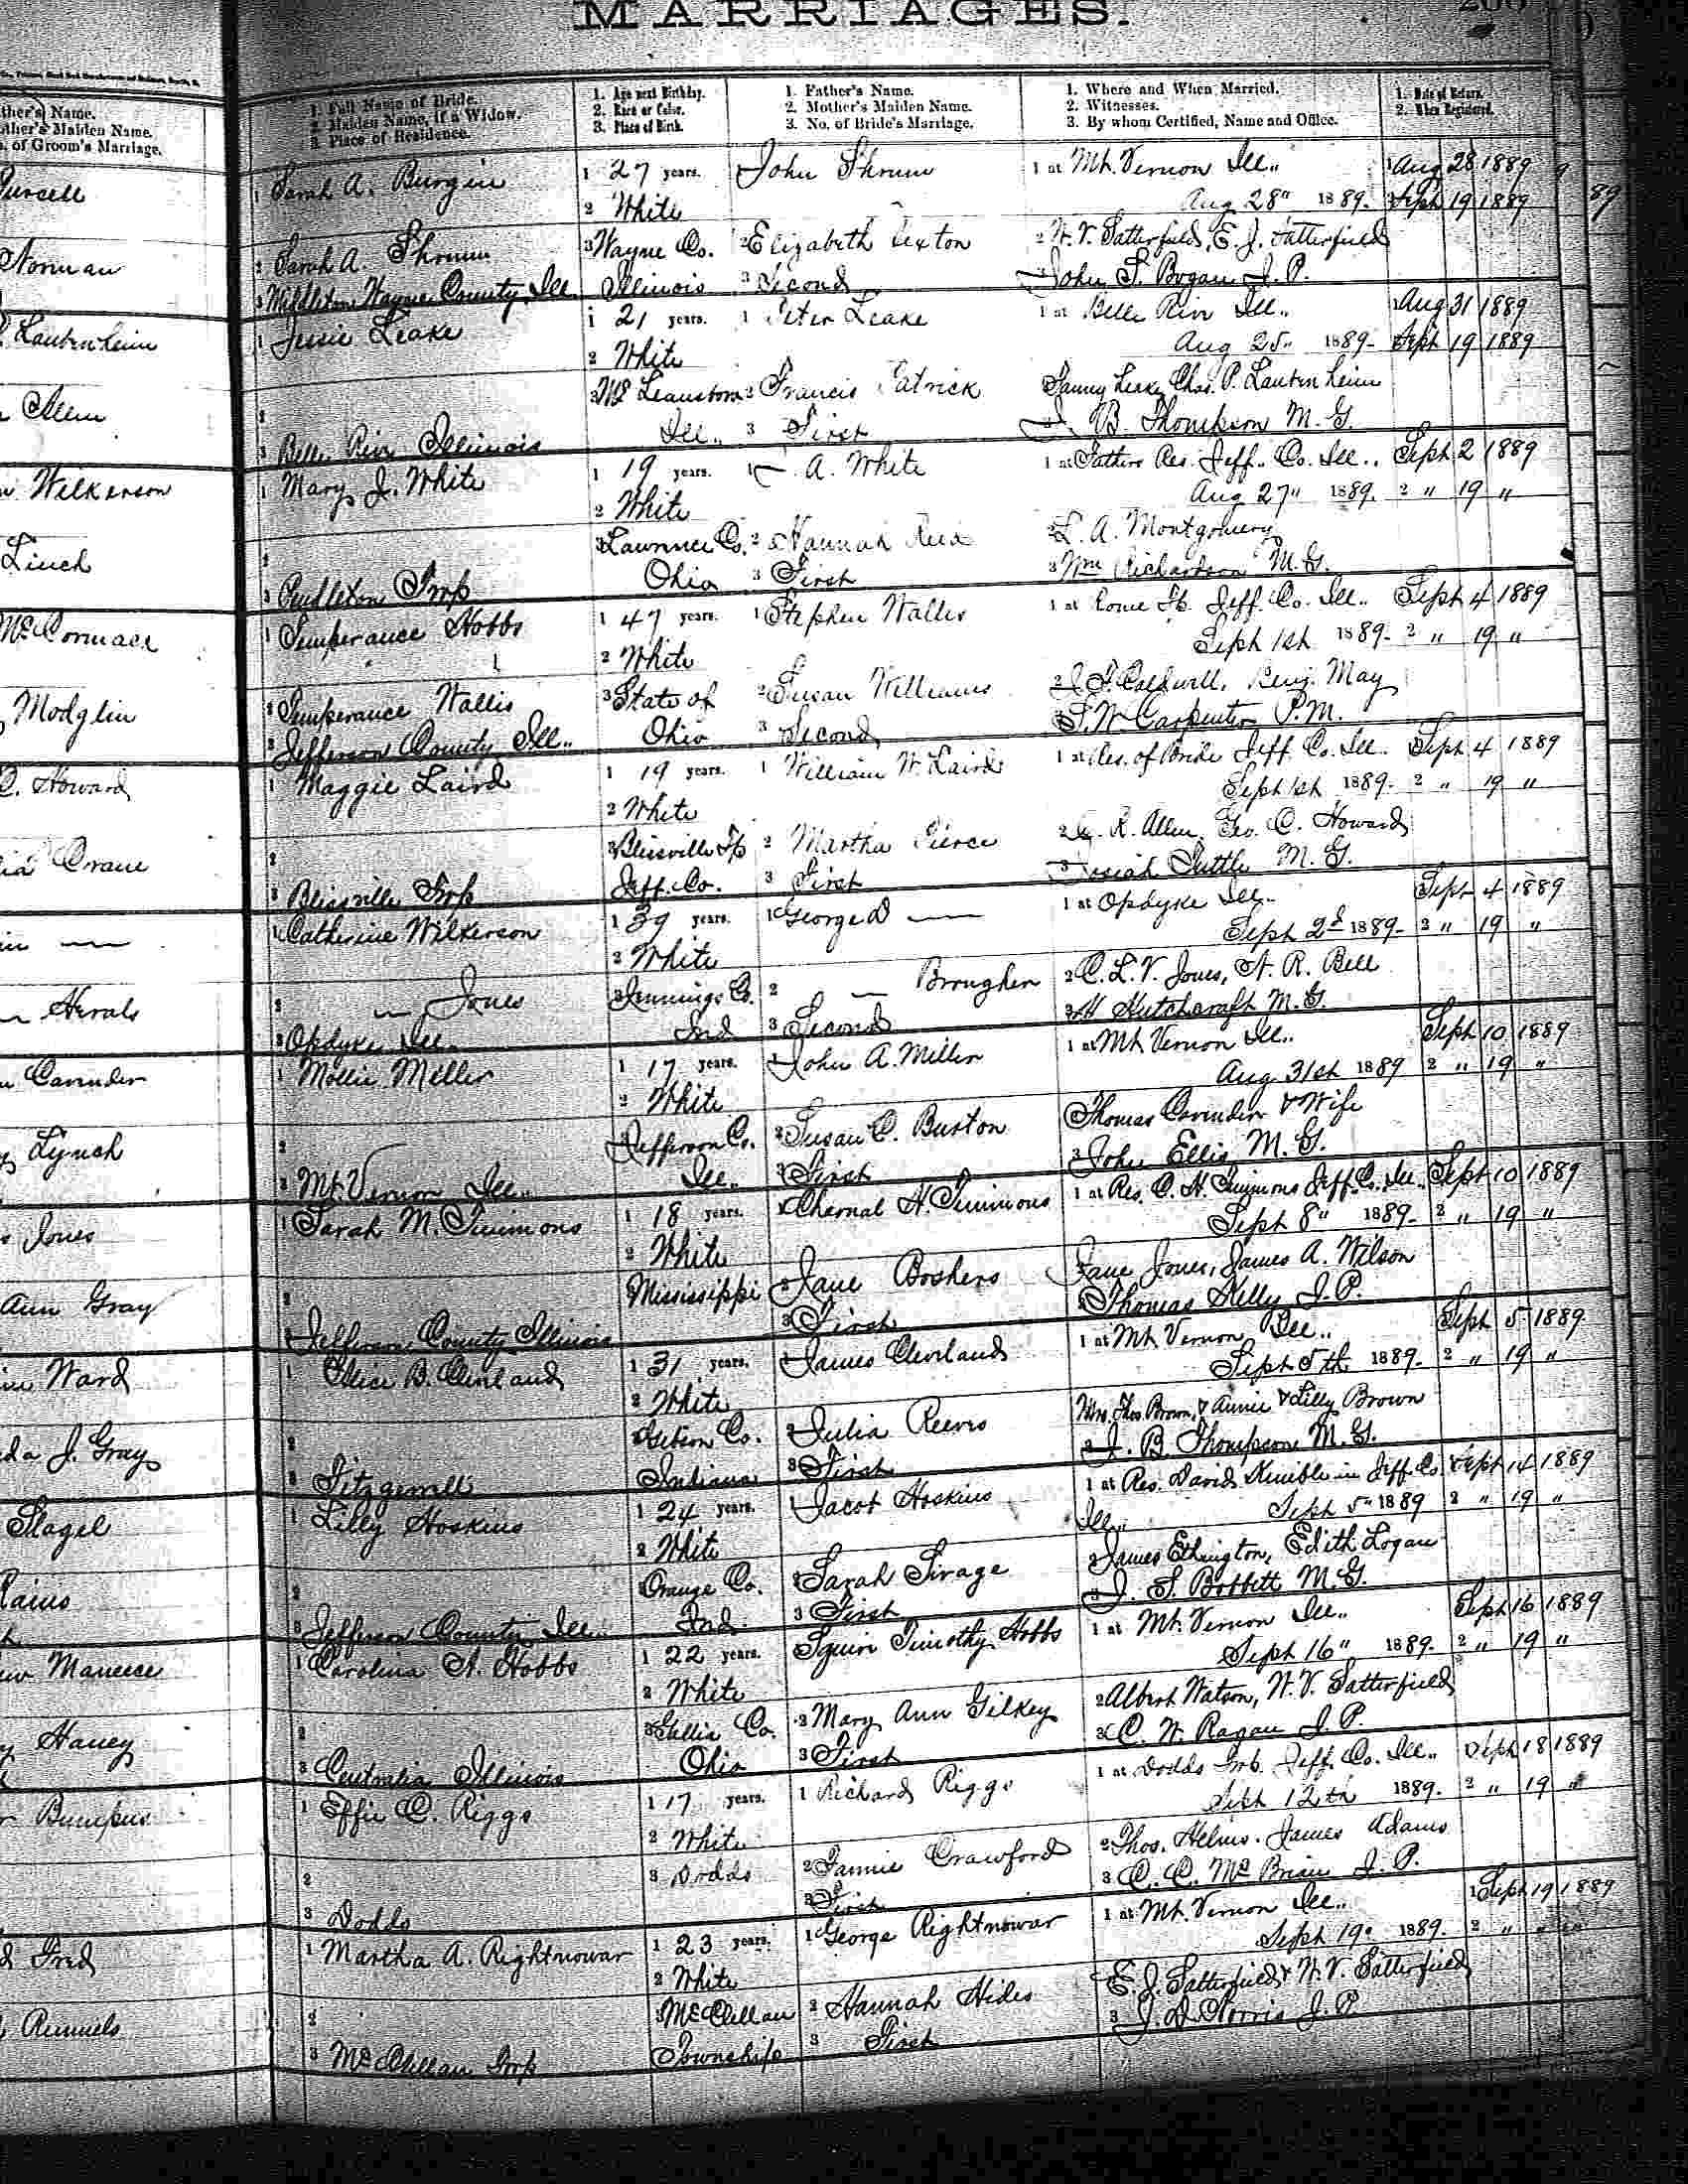 MARRIAGES.
ther's Name.
other's Maiden Name.
of Groom's Marriage.
1. Full Name of Bride.
2. Maiden Name, if a Widow.
3. Place of Residence.
1. Age next Birthday.
2. Race or Color.
3. Place of Birth.
1. Father's Name.
2. Mother's Maiden Name.
3. No. of Bride's Marriage.
1. Where and When Married.
2. Witnesses.
3. By whom Certified, Name and Office.
1. Date of Return.
2. When Registered.
Purcell
1 Sarah A. Burgin 1 27 years. John Shrum 1 at Mt. Vernon Ill. 1 Aug 28 1889
2 White Aug 28" 1889. 2 Sept 19 1889
Norman
2 Sarah A. Shrum 3 Wayne Co. 2 Elizabeth Sexton 2 W. V. Satterfield, E. J. Satterfield
3 Middleton Wayne County, Ill. Illinois 3 Second John S. Bogan J. P.
Lautenheim
1 Jessie Leake 1 21 years. 1 Peter Leake 1 at Belle Rive Ill. 1 Aug 31 1889
2 White Aug 25" 1889- Sept 19 1889
Allen
2 3 2 Francis Patrick Fanny Leake Chas. P. Lautenheim
3 Belle Rive Illinois Ill. 3 First J. B. Thompson M. G.
Wilkerson
1 Mary J. White 1 19 years. 1 — A. White 1 at Fathers Res. Jeff. Co. Ill. Sept 2 1889
2 White Aug 27" 1889. 2 " 19 "
Linch
2 3 Lawrence Co. 2 Hannah Reid 2 L. A. Montgomery
3 Pendleton Twp Ohio 3 First 3 Wm Richardson M. G.
McCormack
1 Temperance Hobbs 1 47 years. 1 Stephen Wallis 1 at Rome Tp. Jeff. Co. Ill. Sept 4 1889
2 White Sept 1st 1889- 2 " 19 "
Modglin
2 Temperance Wallis 3 State of 2 Susan Williams 2 J. T. Caldwell, Benj. May
3 Jefferson County Ill. Ohio 3 Second S. W. Carpenter P. M.
Howard
1 Maggie Laird 1 19 years. 1 William W. Laird 1 at Res. of Bride Jeff. Co. Ill. Sept 4 1889
2 White Sept 1st 1889- 2 " 19 "
Crane
2 3 Blissville Tp 2 Martha Pierce 2 R. Allen, Geo. C. Howard
3 Blissville Twp Jeff. Co. 3 First Josiah Tuttle M. G.
1 Catherine Wilkerson 1 39 years. 1 George D — 1 at Opdyke Ill. Sept 4 1889
2 White Sept 2d 1889- 2 " 19 "
Herals
2 — Jones 3 Jennings Co. 2 — Brougher 2 C. L. V. Jones, A. R. Bell
3 Opdyke Ill. Ind 3 Second 3 H Hutchcraft M. G.
Cavinder
1 Mollie Miller 1 17 years. 1 John A. Miller 1 at Mt Vernon Ill. Sept 10 1889
2 White Aug 31st 1889 2 " 19 "
Lynch
2 Jefferson Co. 2 Susan C. Burton Thomas Cavinder & Wife
3 Mt. Vernon Ill. Ill. 3 First 3 John Ellis M. G.
Jones
1 Sarah M. Timmons 1 18 years. 1 Chernal H. Timmons 1 at Res. C. H. Timmons Jeff. Co. Ill. Sept 10 1889
2 White Sept 8" 1889- 2 " 19 "
Ann Gray
2 Mississippi 2 Jane Boshers Jane Jones, James A. Wilson
3 Jefferson County Illinois 3 First 3 Thomas Kelly J. P.
Ward
1 Alice B. Cleveland 1 31 years. 1 James Cleveland 1 at Mt. Vernon Ill. Sept 5 1889
2 White Sept 5th 1889. 2 " 19 "
da J. Gray
2 3 Gibson Co. 2 Julia Reeves Mrs. Thos. Brown, & Annie & Lilly Brown
3 Fitzgerrell Indiana 3 First 3 J. B. Thompson M. G.
Slagel
1 Lilly Hoskins 1 24 years. 1 Jacob Hoskins 1 at Res. David Kimble in Jeff Co. Sept 14 1889
2 White Ill. Sept 5" 1889 2 " 19 "
Rains
2 Orange Co. 2 Sarah Sirage 2 James Ethington, Edith Logan
3 Jefferson County Ill. Ind. 3 First 3 J. S. Bobbitt M. G.
Maneece
1 Carolina A. Hobbs 1 22 years. Squire Timothy Hobbs 1 at Mt. Vernon Ill. Sept 16 1889
2 White Sept 16" 1889. 2 " 19 "
Haney
2 3 Gallia Co. 2 Mary Ann Gilkey 2 Albert Watson, W. V. Satterfield
3 Centralia Illinois Ohio 3 First 3 C. W. Ragan J. P.
Bumpus
1 Effie C. Riggs 1 17 years. 1 Richard Riggs 1 at Dodds Twp. Jeff. Co. Ill. Sept 18 1889
2 White Sept 12th 1889. 2 " 19 "
2 3 Dodds 2 Fannie Crawford 2 Thos. Helms. James Adams
3 Dodds 3 First 3 C. C. Mc Brian J. P.
Fred
1 Martha A. Rightnowar 1 23 years. 1 George Rightnowar 1 at Mt. Vernon Ill. 1 Sept 19 1889
2 White Sept 19" 1889. 2 " " "
Runnels
2 3 McClellan 2 Hannah Hides E. J. Satterfield & W. V. Satterfield
3 McClellan Twp Township 3 First 3 J. D. Norris J. P.